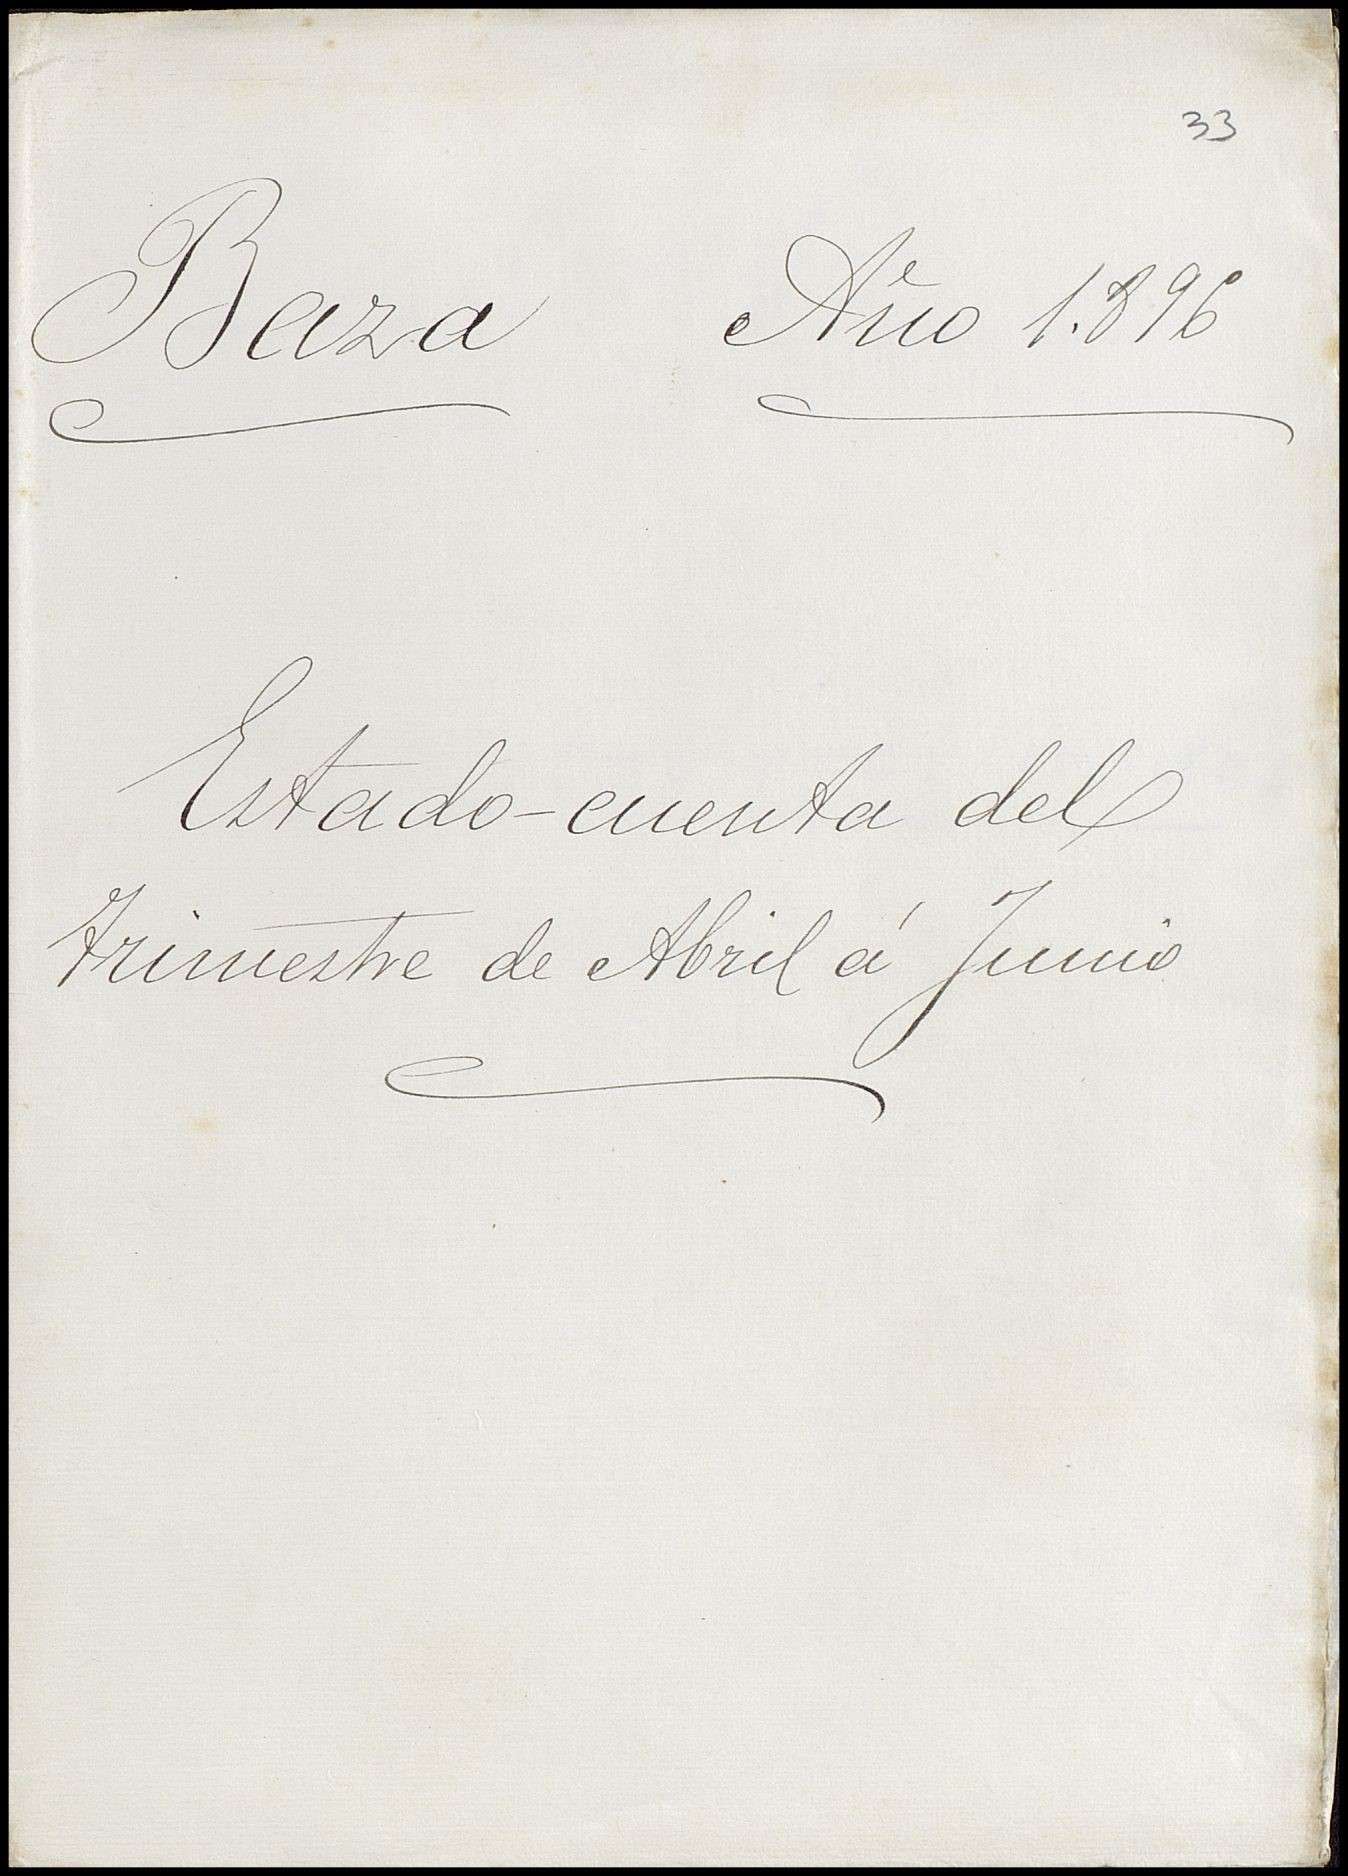 33
Baza Año 1.896
Estado-cuenta del
trimestre de Abril á Junio